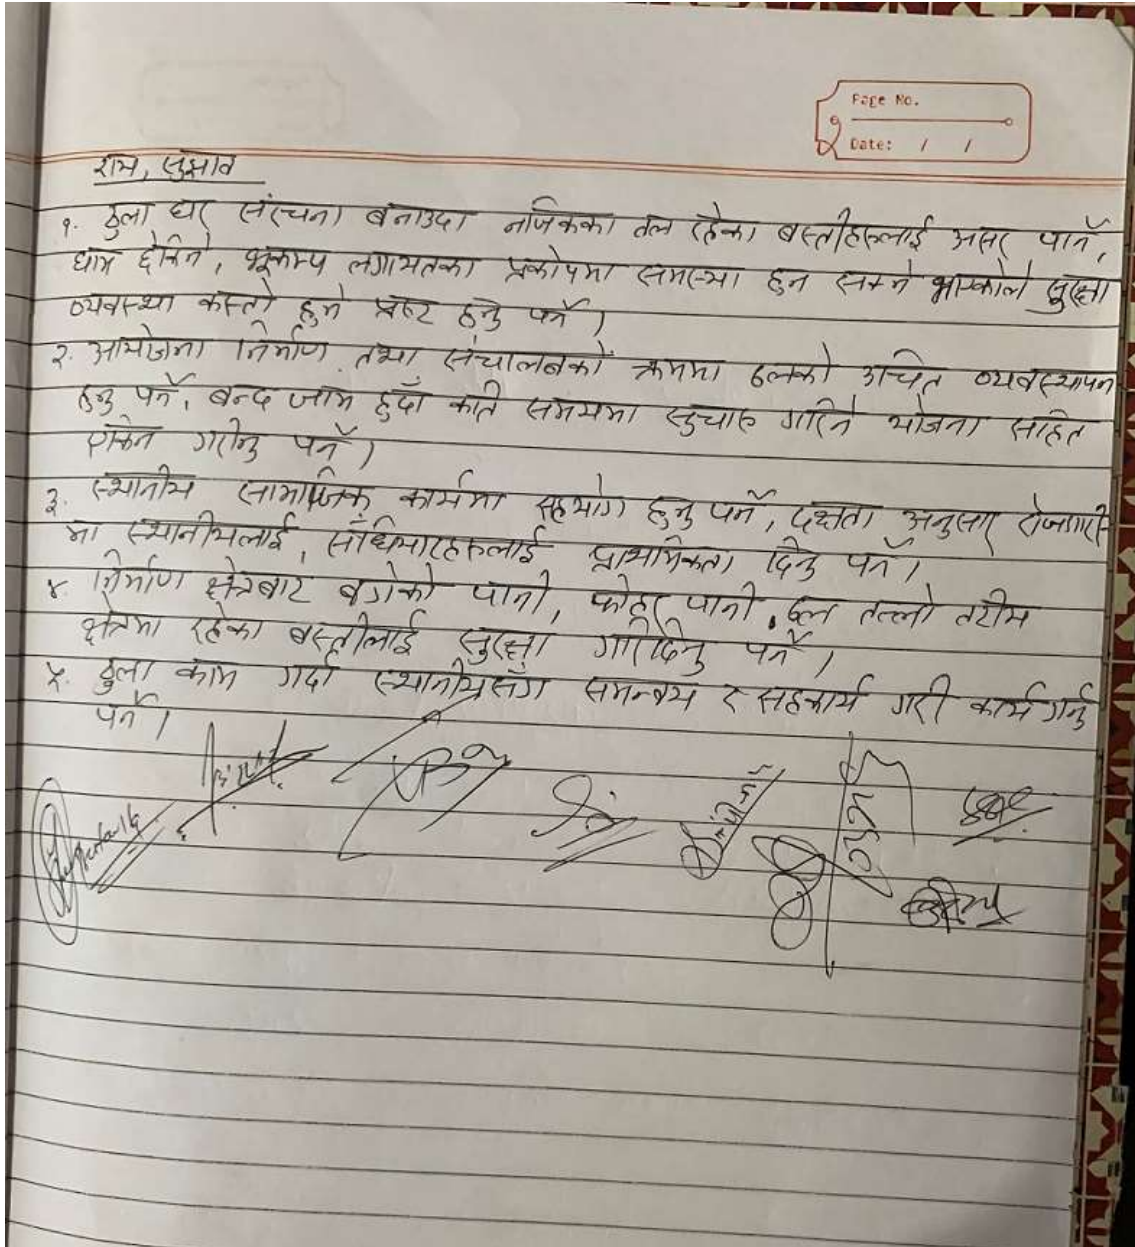 Page No.
Date: / /
राय, सुझाव
१. ठुला घर संरचना बनाउदा नजिकका तल रहेका बस्तीहरुलाई असर पार्ने,
घाम छेकिने, भूकम्प लगायतका प्रकोपमा समस्या हुन सक्ने भएकोले सुरक्षा
व्यवस्था कस्तो हुने प्रष्ट हुनु पर्ने।
२. आयोजना निर्माण तथा संचालनको क्रममा ढलको उचित व्यवस्थापन
हुनु पर्ने, बन्द जाम हुदाँ कति समयमा सुचारु गरिने योजना सहित
एकिन गरीनु पर्ने।
३. स्थानीय सामाजिक कार्यमा सहयोग हुनु पर्ने, दक्षता अनुसार रोजगारी
मा स्थानीयलाई, सँधियारहरुलाई प्राथमिकता दिनु पर्ने।
४. निर्माण क्षेत्रबाट बगेको पानी, फोहर पानी, ढल तल्लो तटीय
क्षेत्रमा रहेका बस्तीलाई सुरक्षा गरिदिनु पर्ने।
५. ठुला काम गर्दा स्थानीयसँग समन्वय र सहकार्य गरी कार्य गर्नु
पर्ने।